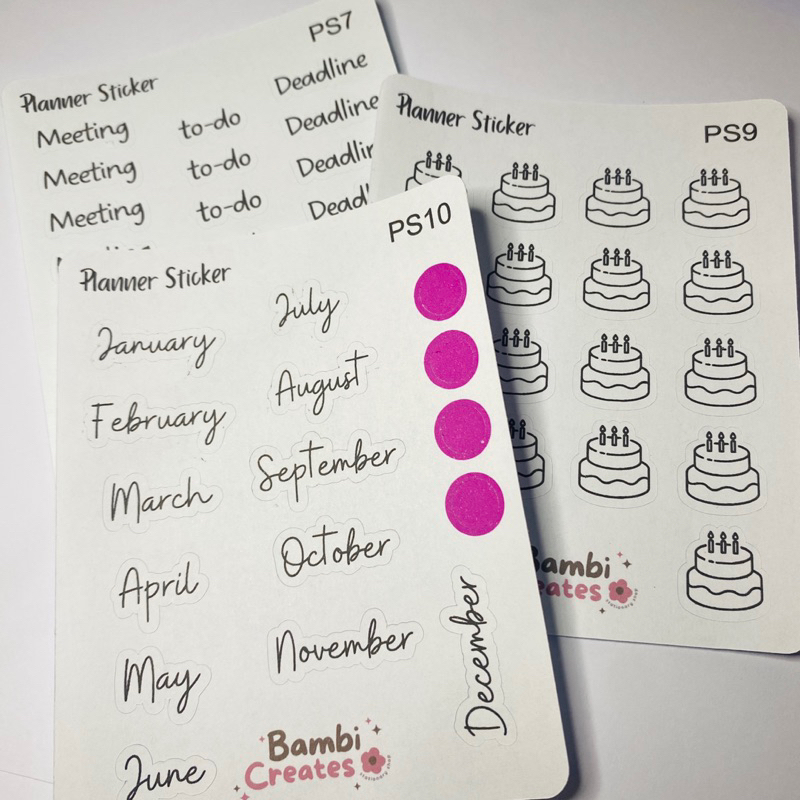 PS7
Planner Sticker
Meeting to-do Deadline
Meeting to-do Deadline
Meeting to-do Deadlin
Meeting to-do Deadl
Planner Sticker PS9
Bambi
Creates
stationery shop
Planner Sticker PS10
January
February
March
April
May
June
July
August
September
October
November
December
Bambi
Creates
stationery shop